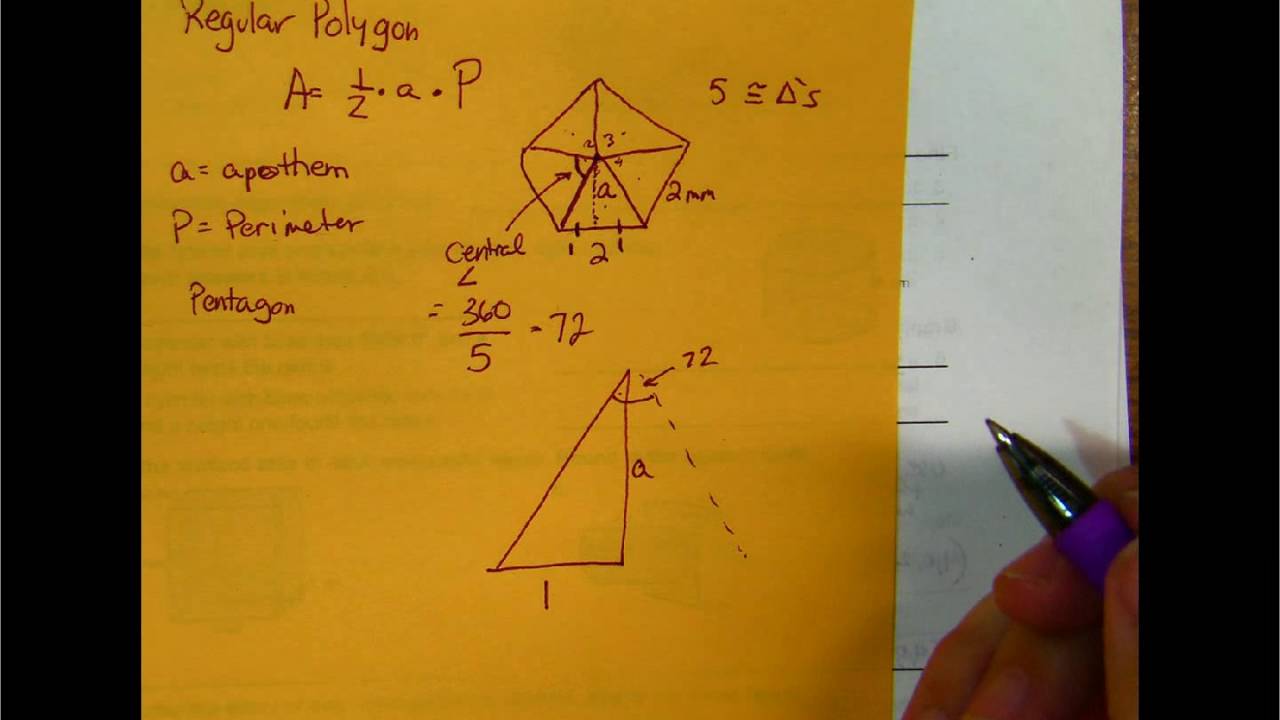 Regular Polygon
A = 1/2 · a · P
5 ≅ Δ's
a = apothem
P = Perimeter
2 3
4
a
2 mm
1 2 1
Central
∠
Pentagon
= 360/5 = 72
72
a
1